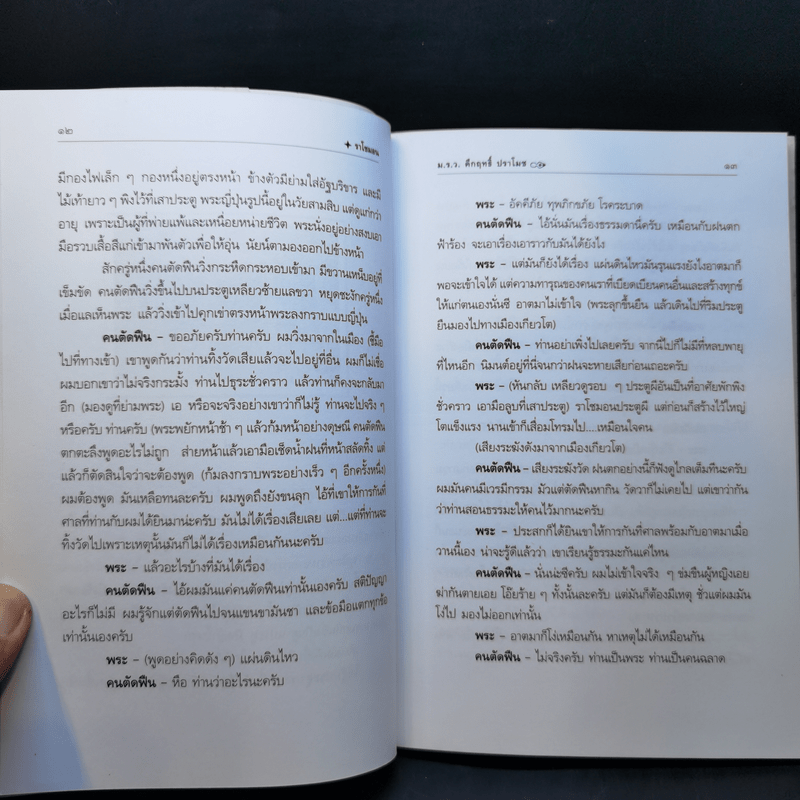 ๑๒
ราโชมอน
มีกองไฟเล็ก ๆ กองหนึ่งอยู่ตรงหน้า ข้างตัวมีย่ามใส่อัฐบริขาร และมี
ไม้เท้ายาว ๆ พิงไว้ที่เสาประตู พระญี่ปุ่นรูปนี้อยู่ในวัยสามสิบ แต่ดูแก่กว่า
อายุ เพราะเป็นผู้ที่พ่ายแพ้และเหนื่อยหน่ายชีวิต พระนั่งอยู่อย่างสงบเอา
มือรวบเสื้อสีแก่เข้ามาพันตัวเพื่อให้อุ่น นัยน์ตามองออกไปข้างหน้า
สักครู่หนึ่งคนตัดฟืนวิ่งกระหืดกระหอบเข้ามา มีขวานเหน็บอยู่ที่
เข็มขัด คนตัดฟืนวิ่งขึ้นไปบนประตูเหลียวซ้ายแลขวา หยุดชะงักครู่หนึ่ง
เมื่อแลเห็นพระ แล้ววิ่งเข้าไปคุกเข่าตรงหน้าพระลงกราบแบบญี่ปุ่น
คนตัดฟืน – ขออภัยครับท่านครับ ผมวิ่งมาจากในเมือง (ชี้มือ
ไปที่ทางเข้า) เขาพูดกันว่าท่านทิ้งวัดเสียแล้วจะไปอยู่ที่อื่น ผมก็ไม่เชื่อ
ผมบอกเขาว่าไม่จริงกระมั้ง ท่านไปธุระชั่วคราว แล้วท่านก็คงจะกลับมา
อีก (มองดูที่ย่ามพระ) เอ หรือจะจริงอย่างเขาว่าก็ไม่รู้ ท่านจะไปจริง ๆ
หรือครับ ท่านครับ (พระพยักหน้าช้า ๆ แล้วก้มหน้าอย่างดุษณี คนตัดฟืน
ตกตะลึงพูดอะไรไม่ถูก ส่ายหน้าแล้วเอามือเช็ดน้ำฝนที่หน้าสลัดทิ้ง แต่
แล้วก็ตัดสินใจว่าจะต้องพูด (ก้มลงกราบพระอย่างเร็ว ๆ อีกครั้งหนึ่ง)
ผมต้องพูด มันเหลือทนละครับ ผมพูดถึงยังขนลุก ไอ้ที่เขาให้การกันที่
ศาลที่ท่านกับผมได้ยินมาน่ะครับ มันไม่ได้เรื่องเสียเลย แต่...แต่ที่ท่านจะ
ทิ้งวัดไปเพราะเหตุนั้นมันก็ไม่ได้เรื่องเหมือนกันนะครับ
พระ – แล้วอะไรบ้างที่มันได้เรื่อง
คนตัดฟืน – ไอ้ผมมันแค่คนตัดฟืนเท่านั้นเองครับ สติปัญญา
อะไรก็ไม่มี ผมรู้จักแต่ตัดฟืนไปจนแขนขามันชา และข้อมือแตกทุกข้อ
เท่านั้นเองครับ
พระ – (พูดอย่างคิดดัง ๆ) แผ่นดินไหว
คนตัดฟืน – หือ ท่านว่าอะไรนะครับ
ม.ร.ว. คึกฤทธิ์ ปราโมช
๑๓
พระ – อัคคีภัย ทุพภิกขภัย โรคระบาด
คนตัดฟืน – ไอ้นั่นมันเรื่องธรรมดานี่ครับ เหมือนกับฝนตก
ฟ้าร้อง จะเอาเรื่องเอาราวกับมันได้ยังไง
พระ – แต่มันก็ยังได้เรื่อง แผ่นดินไหวมันรุนแรงยังไงอาตมาก็
พอจะเข้าใจได้ แต่ความทารุณของคนเราที่เบียดเบียนคนอื่นและสร้างทุกข์
ให้แก่ตนเองนั่นซี อาตมาไม่เข้าใจ (พระลุกขึ้นยืน แล้วเดินไปที่ริมประตู
ยืนมองไปทางเมืองเกียวโต)
คนตัดฟืน – ท่านอย่าเพิ่งไปเลยครับ จากนี้ไปก็ไม่มีที่หลบพายุ
ที่ไหนอีก นิมนต์อยู่ที่นี่จนกว่าฝนจะหายเสียก่อนเถอะครับ
พระ – (หันกลับ เหลียวดูรอบ ๆ ประตูผีอันเป็นที่อาศัยพักพิง
ชั่วคราว เอามือลูบที่เสาประตู) ราโชมอนประตูผี แต่ก่อนก็สร้างไว้ใหญ่
โตแข็งแรง นานเข้าก็เสื่อมโทรมไป....เหมือนใจคน
(เสียงระฆังดังมาจากเมืองเกียวโต)
คนตัดฟืน – เสียงระฆังวัด ฝนตกอย่างนี้ก็ฟังดูไกลเต็มทีนะครับ
ผมมันคนมีเวรมีกรรม มัวแต่ตัดฟืนหากิน วัดวาก็ไม่เคยไป แต่เขาว่ากัน
ว่าท่านสอนธรรมะให้คนไว้มากนะครับ
พระ – ประสกก็ได้ยินเขาให้การกันที่ศาลพร้อมกับอาตมาเมื่อ
วานนี้เอง น่าจะรู้ดีแล้วว่า เขาเรียนรู้ธรรมะกันแค่ไหน
คนตัดฟืน – นั่นน่ะซีครับ ผมไม่เข้าใจจริง ๆ ข่มขืนผู้หญิงเอย
ฆ่ากันตายเอย โอ๊ยร้าย ๆ ทั้งนั้นละครับ แต่มันก็ต้องมีเหตุ ชั่วแต่ผมมัน
โง่ไป มองไม่ออกเท่านั้น
พระ – อาตมาก็โง่เหมือนกัน หาเหตุไม่ได้เหมือนกัน
คนตัดฟืน – ไม่จริงครับ ท่านเป็นพระ ท่านเป็นคนฉลาด